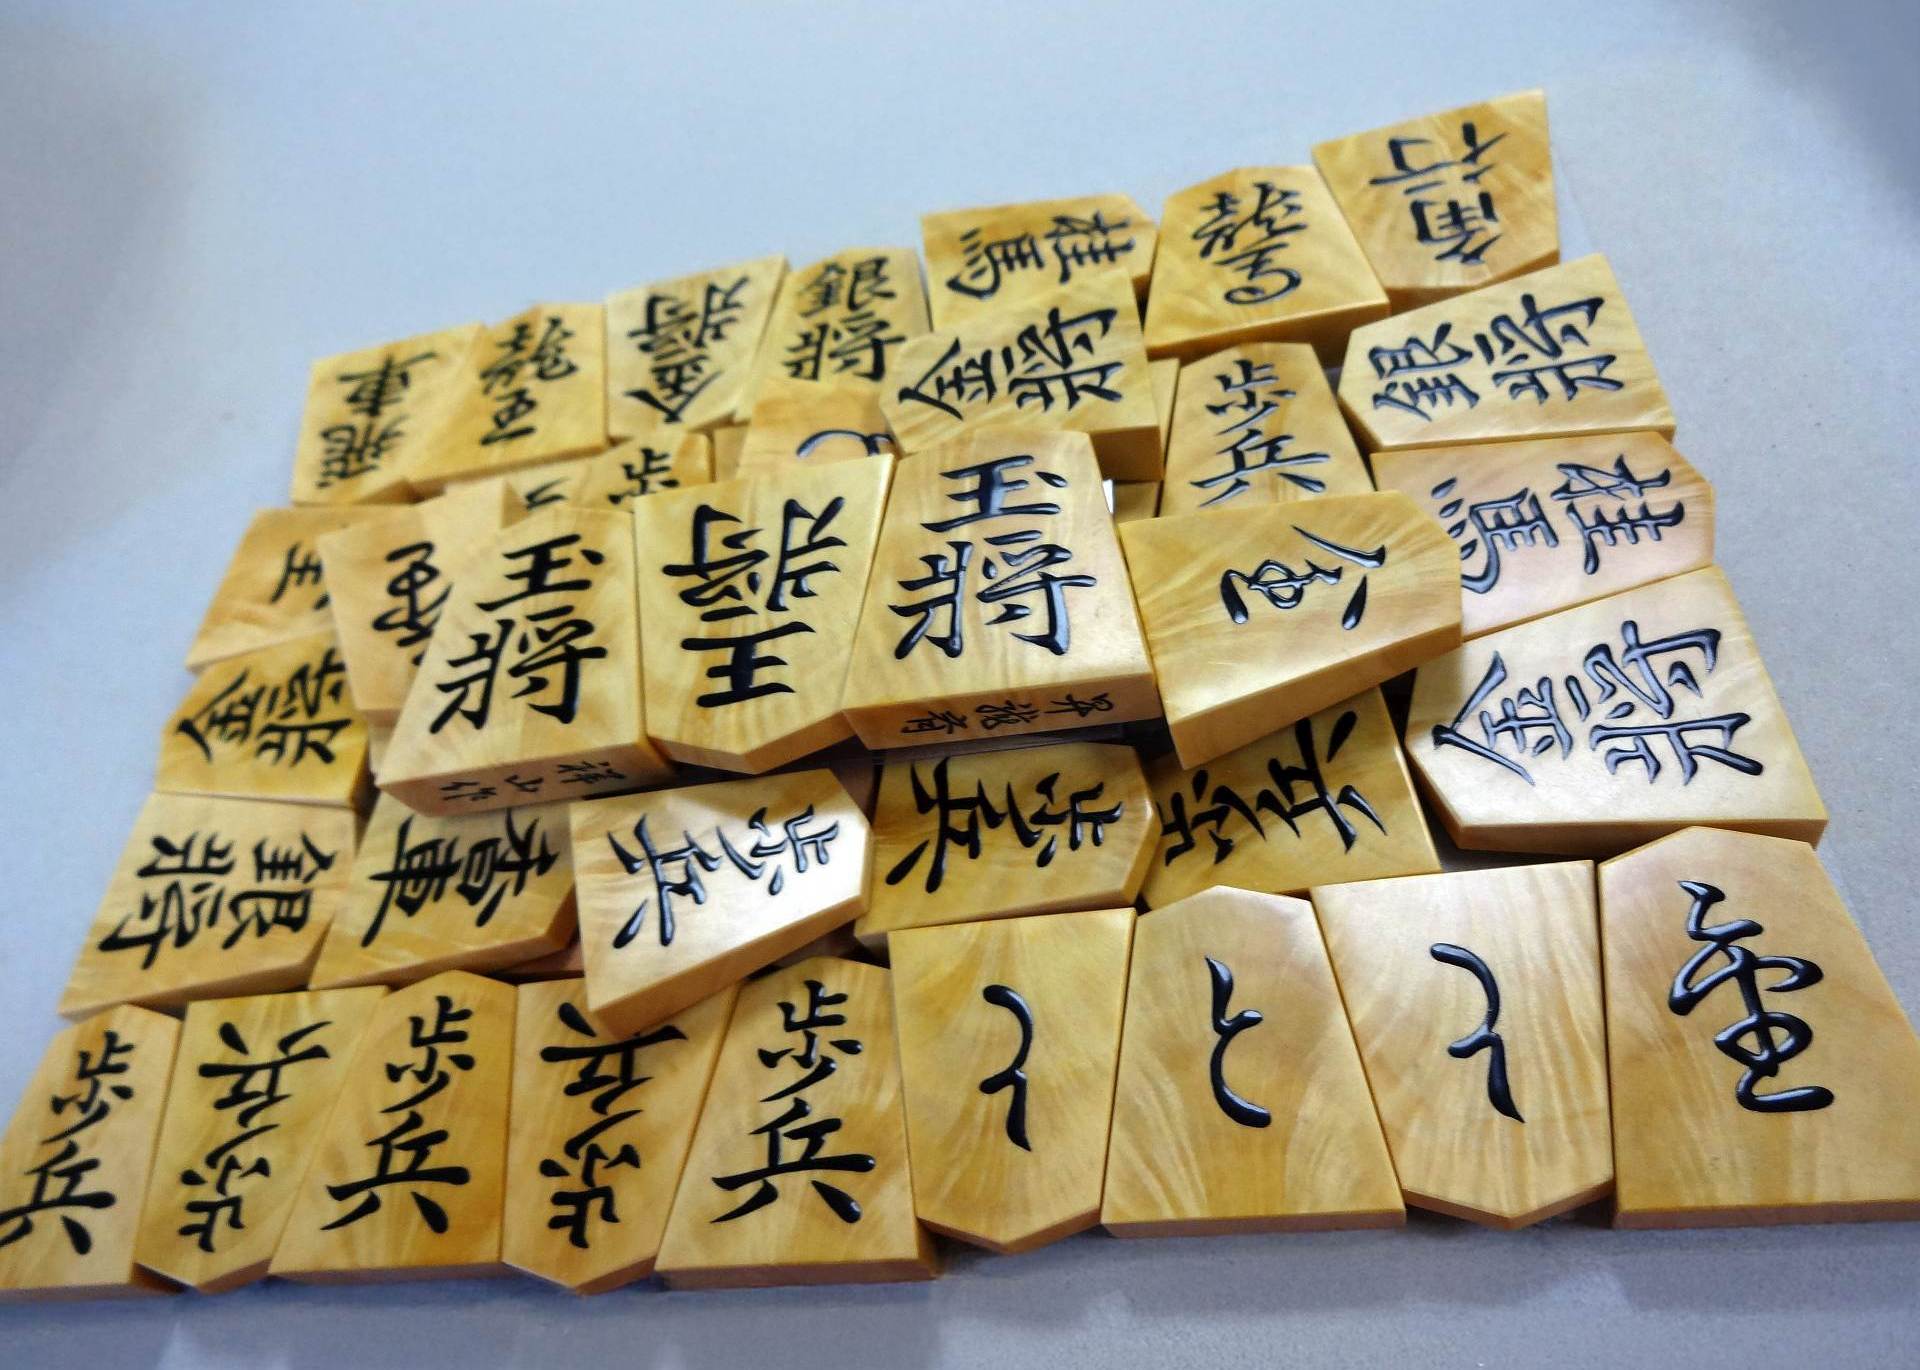 角行
桂馬
龍馬
銀将
金将
飛車
龍王
金将
銀将
歩兵
歩
桂馬
玉将
王将
玉将
金
金将
昇龍斎
祥山作
金将
銀将
香車
歩兵
歩兵
歩兵
歩兵
歩兵
歩兵
歩兵
歩兵
と
と
と
全